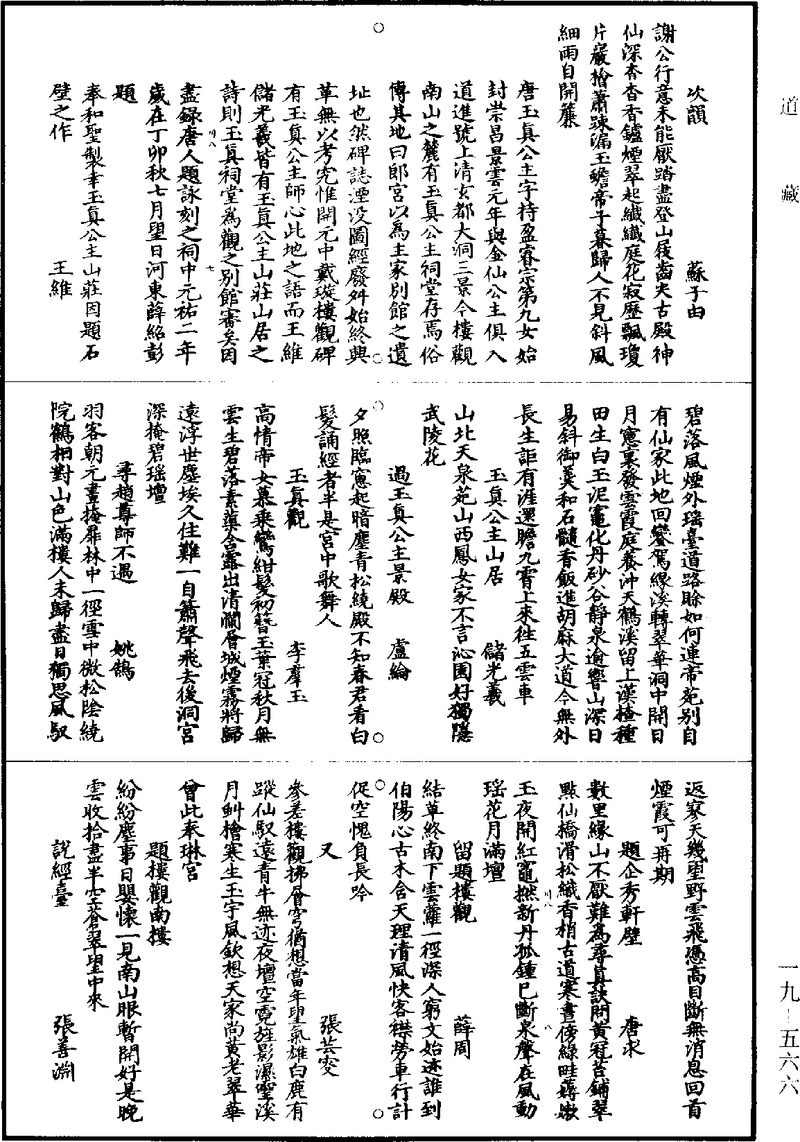 道藏
次韻　蘇子由
謝公行意未能厭踏盡登山屐齒尖古殿神
仙深杳杳香鑪煙翠起纖纖庭花寂歷飄瓊
片巖檜蕭踈漏玉蟾帝子暮歸人不見斜風
細雨自開簾
唐玉真公主字持盈睿宗第九女始
封崇昌景雲元年與金仙公主俱入
道進號上清玄都大洞三景今樓觀
南山之麓有玉真公主祠堂存焉俗
傳其地曰邸宮以為主家別館之遺
址也然碑誌湮没圖經廢舛始終興
革無以考究惟開元中戴璇樓觀碑
有玉真公主師心此地之語而王維
儲光羲皆有玉真公主山莊山居之
詩則玉真祠堂為觀之別館審矣因
盡錄唐人題詠刻之祠中元祐二年
歲在丁卯秋七月望日河東薛紹彭
題
奉和聖製幸玉真公主山莊因題石
壁之作　王維
碧落風煙外瑤臺道路賒如何連帝苑別自
有仙家此地回鑾駕緣溪轉翠華洞中開日
月窻裏發雲霞庭養沖天鶴溪留上漢楂種
田生白玉泥竈化丹砂谷靜泉逾響山深日
易斜御羹和石髓香飯進胡麻大道今無外
長生詎有涯還瞻九霄上來往五雲車
玉真公主山居　儲光羲
山北天泉苑山西鳳女家不言沁園好獨隱
武陵花
過玉真公主景殿　盧綸
夕照臨窻起暗塵青松繞殿不知春君看白
髮誦經者半是宮中歌舞人
玉真觀　李羣玉
高情帝女慕乘鸞紺髮初簪玉葉冠秋月無
雲生碧落素蕖含露出清瀾層城煙霧將歸
遠浮世塵埃久住難一自簫聲飛去後洞宮
深掩碧瑤壇
尋趙尊師不遇　姚鵠
羽客朝元晝掩扉林中一徑雪中微松陰繞
院鶴相對山色滿樓人未歸盡日獨思風馭
返寥天幾望野雲飛憑高目斷無消息回首
煙霞可再期
題企秀軒壁　唐求
數里緣山不厭難為尋真訣問黃冠苔鋪翠
點仙橋滑松織香梢古道寒晝傍綠畦薅嫩
玉夜開紅竈撚新丹孤鍾已斷泉聲在風動
瑤花月滿壇
留題樓觀　薛周
結草終南下雲蘿一徑深人窮文始迹誰到
伯陽心古木含天理清風快客襟勞車行計
促空愧負長吟
又　張芸叟
參差樓觀拂層穹猶想當年望氣雄白鹿有
蹤仙馭遠青牛無迹夜壇空霓旌影濕靈溪
月虯檜寒生玉宇風欽想天家尚黃老翠華
曾此奉琳宮
題樓觀南樓
紛紛塵事日嬰懷一見南山眼暫開好是晚
雲收拾盡半空蒼翠望中來
說經臺　張善淵
一九－五六六